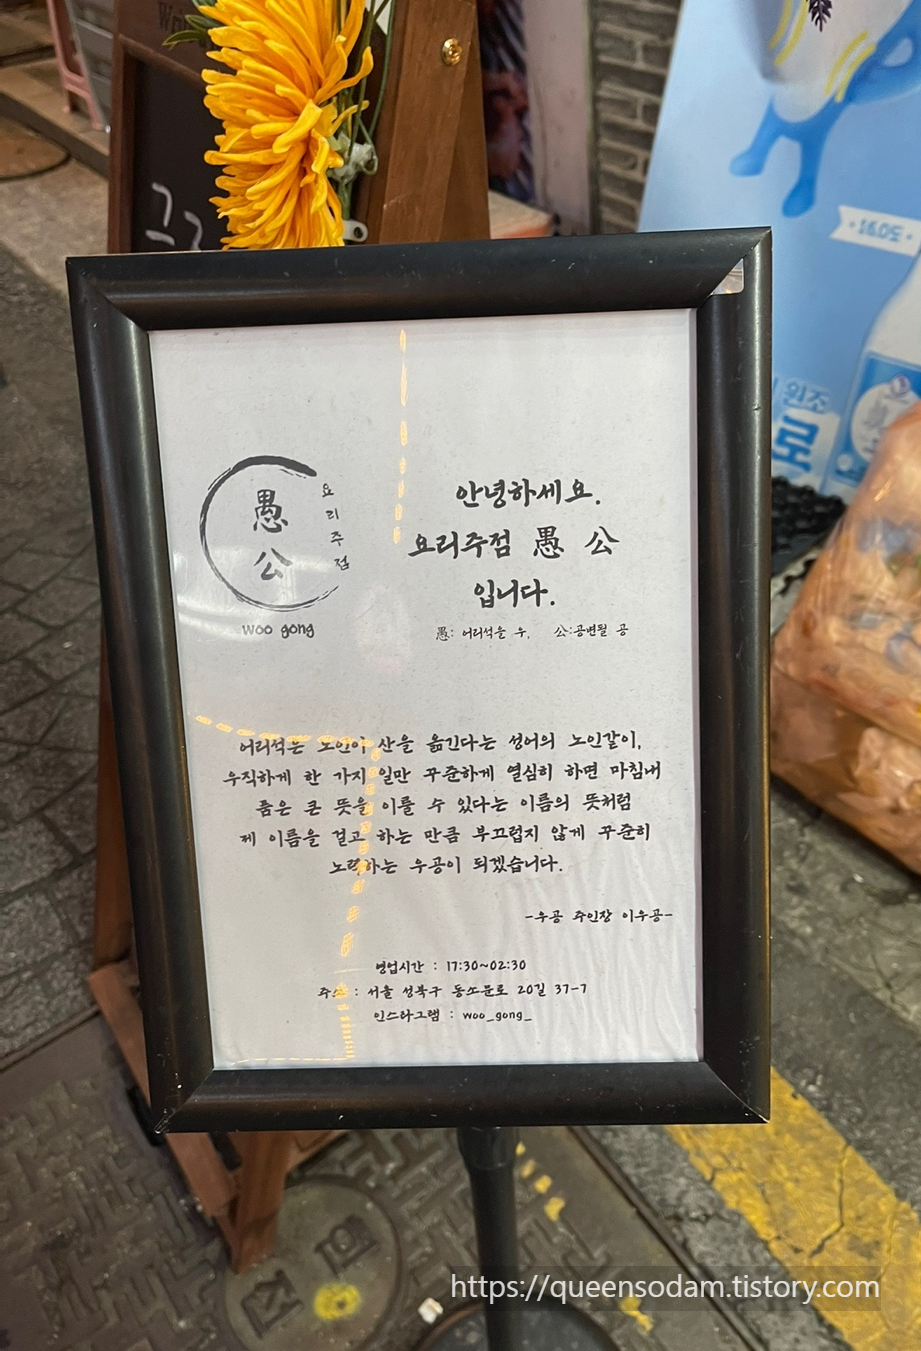 23
16.05
원조
로
愚
公
요리주점
woo gong
안녕하세요.
요리주점 愚 公
입니다.
愚: 어리석을 우, 公:공변될 공
어리석은 노인이 산을 옮긴다는 성어의 노인같이,
우직하게 한 가지 일만 꾸준하게 열심히 하면 마침내
품은 큰 뜻을 이룰 수 있다는 이름의 뜻처럼
제 이름을 걸고 하는 만큼 부끄럽지 않게 꾸준히
노력하는 우공이 되겠습니다.
-우공 주인장 이우공-
영업시간 : 17:30~02:30
주소 : 서울 성북구 동소문로 20길 37-7
인스타그램 : woo_gong_
https://queensodam.tistory.com